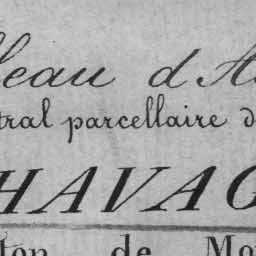 leau d'As
tral parcellaire d
HAVAG
ton de Mo